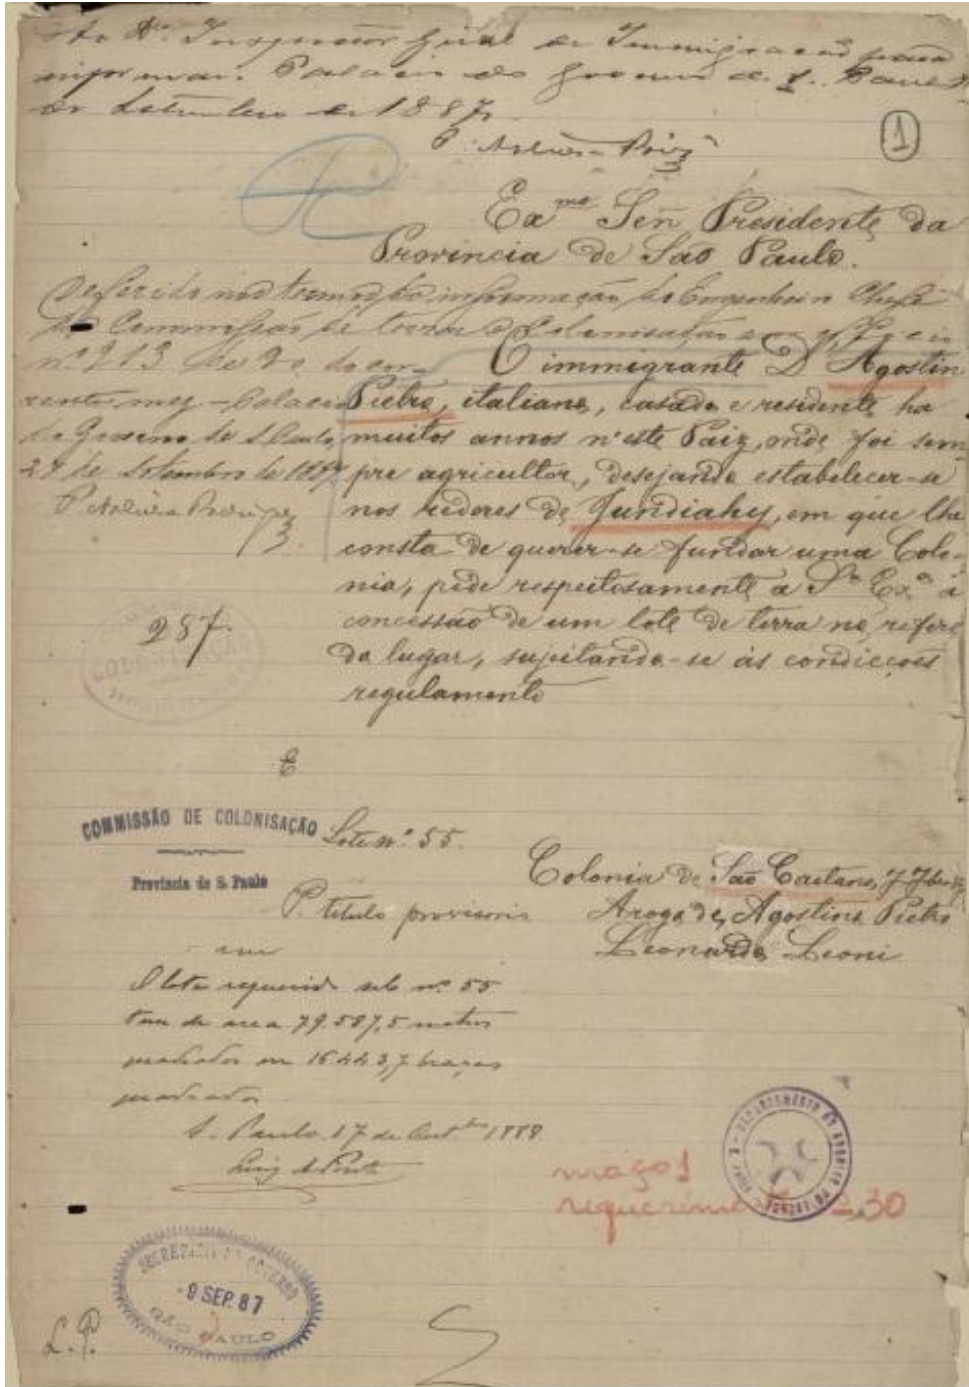 Ao Dr. Inspector Geral de Immigração para
informar. Palacio do Governo de S. Paulo
de Setembro de 1887.
1
Exmo Señ Presidente da
Provincia de São Paulo.
Deferido nos termos da informação do Engenheiro Chefe
da Commissão de terras e Colonisação
nº 213 de 20 do cor-
rente mez - Palacio
do Governo de S. Paulo,
de Setembro de 1887
O immigrante D'Agostin
Pietro, italiano, casado e residente ha
muitos annos n'este Paiz, onde foi sem-
pre agricultor, desejando estabelecer-se
nos redores de Jundiahy, em que lhe
consta de querer-se fundar uma Colo-
nia, pede respeitosamente a Sª Exª a
concessão de um lote de terra no referi
do lugar, sujeitando-se ás condicções
regulamento
287.
COLONISAÇÃO
E
COMMISSÃO DE COLONISAÇÃO
Provincia de S. Paulo
Lote nº 55.
P. titulo provisorio
Colonia de São Caetano, 7 7bro 87
Arogo de, Agostino Pietro
Leonardo Leoni
O lote requerido sob nº 55
tem de area 79.587,5 metros
quadrados ou 16443,7 braças
quadradas
S. Paulo, 17 de Outbro 1888
maço 1
requerimento 30
SECRETARIA DO GOVERNO
9 SEP. 87
SÃO PAULO
L. P.